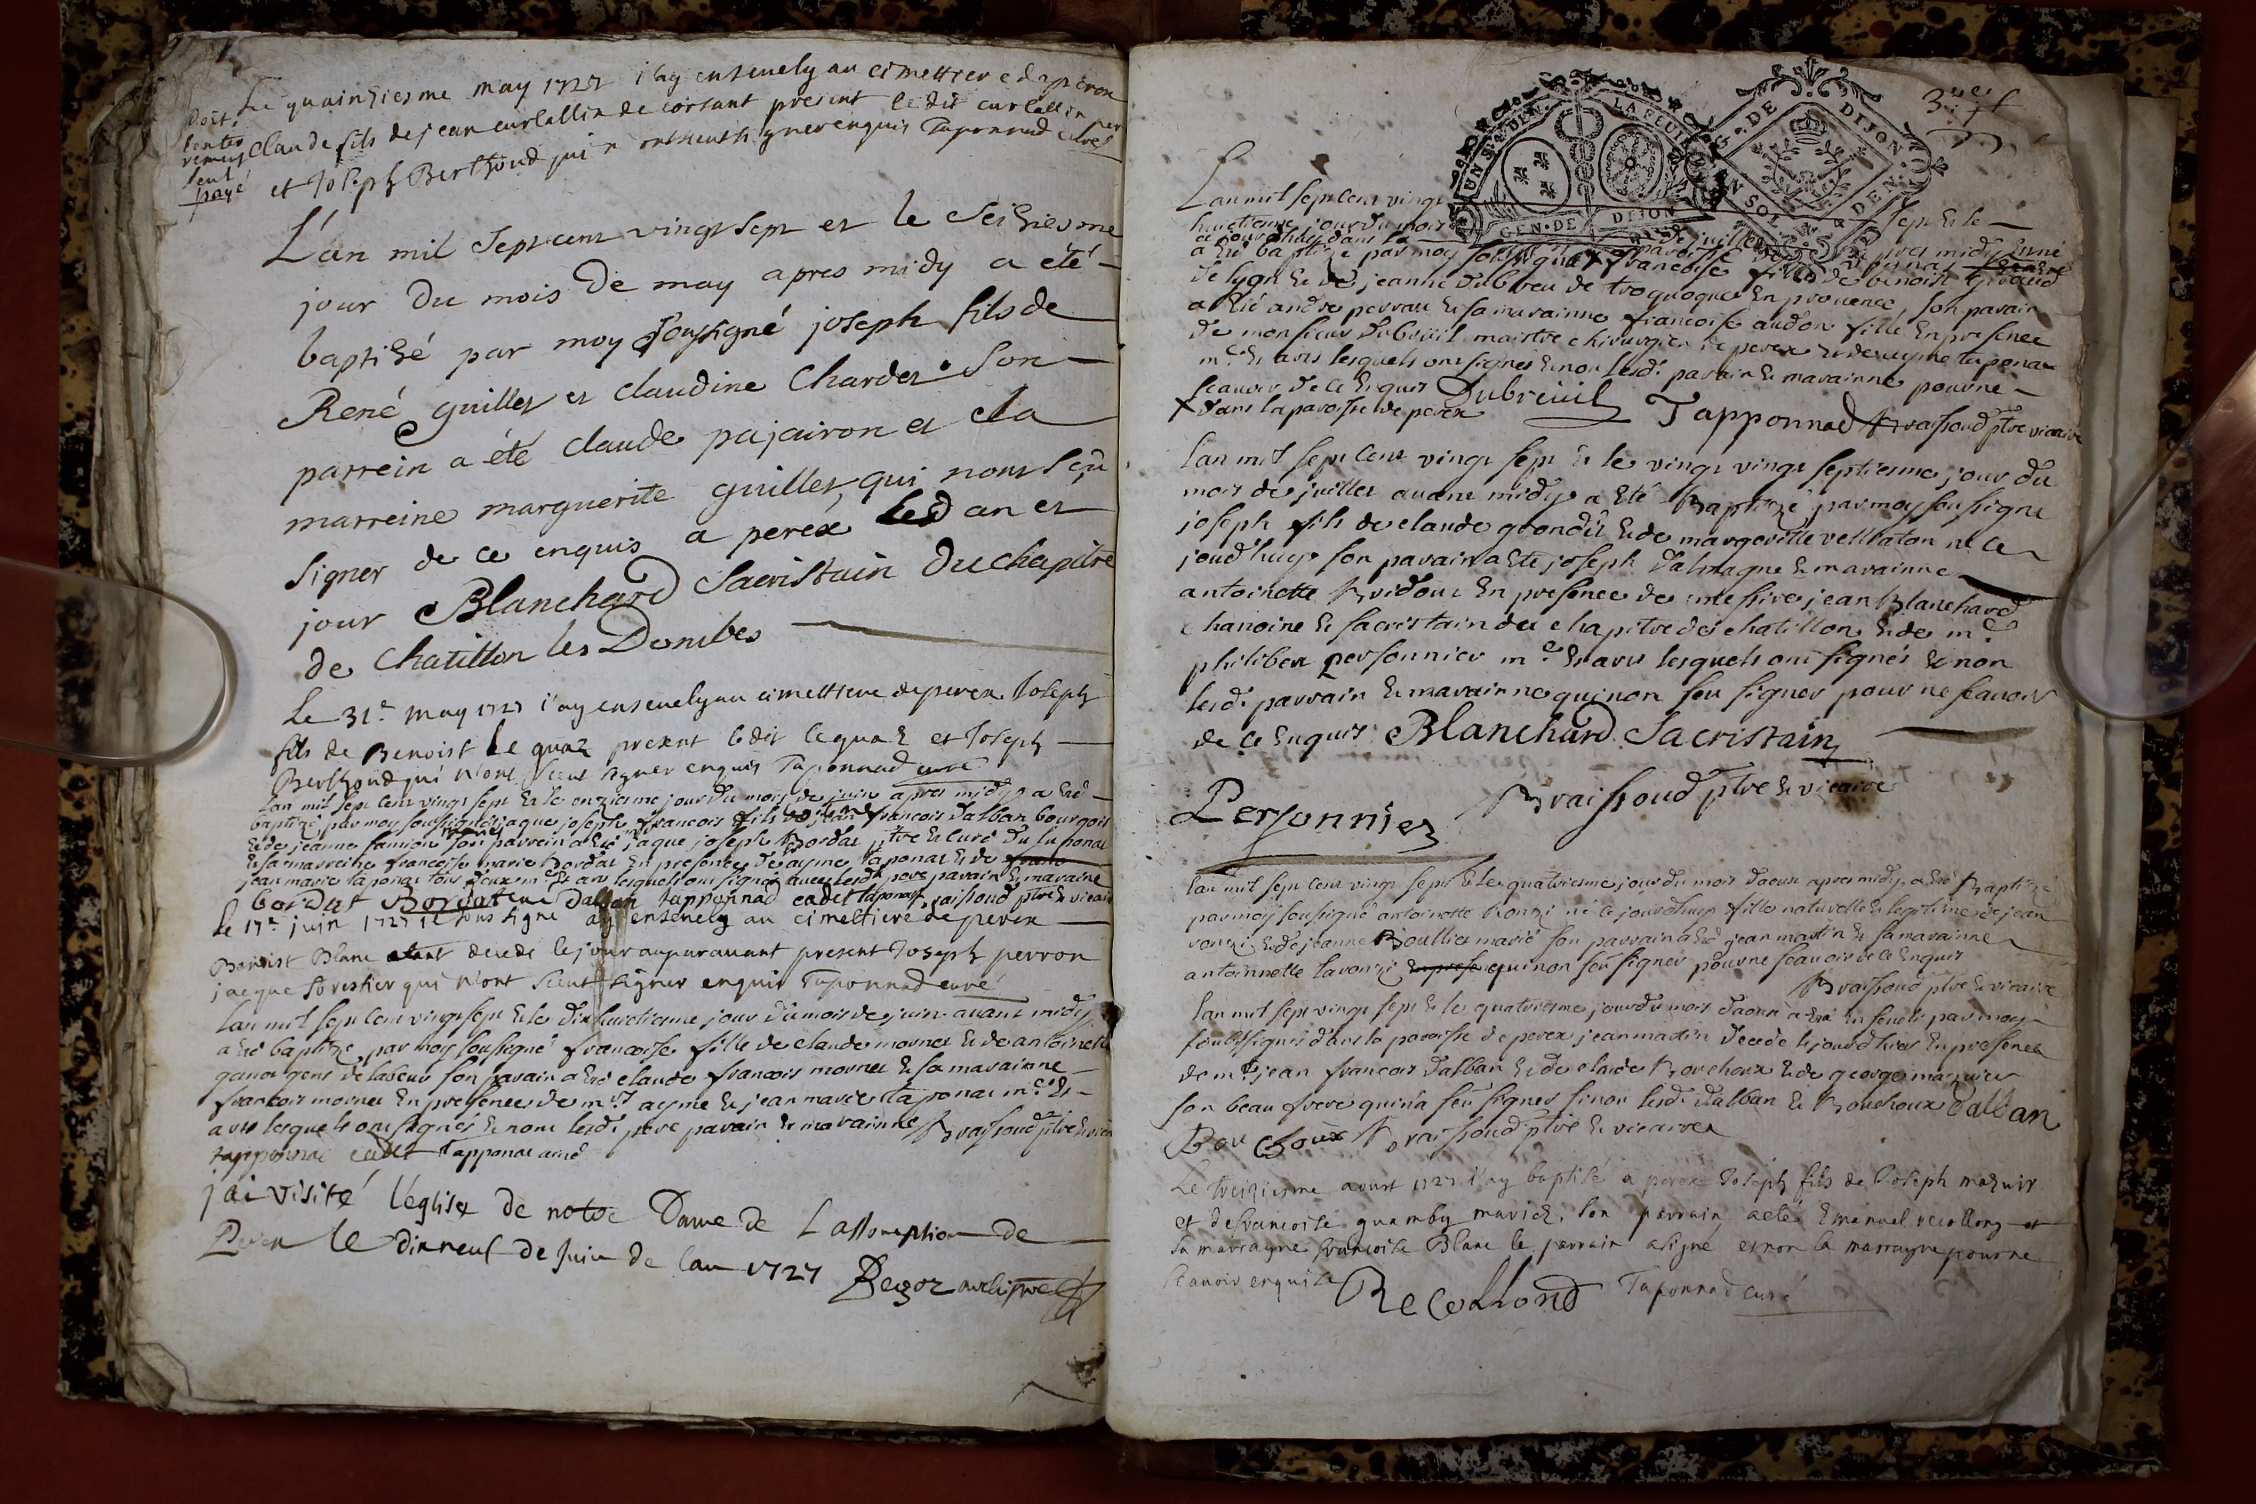 Le quainziesme may 1727 i'ay ensevely au cimettiere de peron
doit
l'enter
rement
seul
payé
Claude fils de jean curtallin de corsant present le dit curtallin per
et Joseph Berthoud qui n'ont sceut signer enquis Taponnad curé
L'an mil sept cent vingt sept et le seiziesme
jour du mois de may apres midy a été
baptizé par moy soussigné joseph fils de
René guillet et claudine Chardet son
parrein a été claude pajairon et la
marreine marguerite guillet, qui n'ont sçû
signer de ce enquis a peréx lesd an et
jour Blanchard Sacristain du chapitre
de Chatillon les Dombes
Le 31e may 1727 i'ay ensevely au cimettiere de perex Joseph
fils de Benoist le quaz present ledit lequaz et Joseph
Berthoud qui n'ont sceut signer enquis Taponnad curé
lan mil sept cent vingt sept & le onziesme jour du mois de juin apres midy a été
baptizé par moy soussigné jaque joseph francois fils de francois dalban bourgois
& de jeanne famion son parrein a été jaque joseph Bordat ptre & curé du
& sa marreine francoise marie Bordat en presence de ayme taponat & de
jean marie taponat tous deux lesquels ont signés avec lesd pere parain & maraine
bordat Bordat dalban tapponnad cadet taponat raissoud ptre & vicaire
Le 17e juin 1727 je sous signé ay ensevely au cimettiere de perex
Benoist Blanc decede le jour auparavant present Joseph perron
jacque forestier qui n'ont sceut signer enquis Taponnad curé
lan mil sept cent vingt sept & le dix huictieme jour du mois de juin avant midy
a été baptizé par moy soussigné francoise fille de claude mornet & de antoinette
gens de labeur son parain a été claude francois mornet & sa maraine
francoise mornet en presence de mrs ayme & jean marie taponat
lesquels ont signés & non lesd pere parain & maraine Braissoud ptre & vicaire
tapponnat cadet Tapponat ainé
j'ai visité l'eglise de notre Dame de L assomption de
Perex le dixneuf de Juin de lan 1727
LA FEUIL
GEN · DE DIJON
G · DE DIJON
UN SOL
& DEN.
L an mil sept cent vingt sept & le
huictieme jour du mois de juillet apres midy
a été baptizé par moy soussigné francoise fille de benoist
de lyon & de jeanne dubreu de en provence son parain
a été andré perrau & sa maraine francoise audon fille en presence
de monsieur dubreüil maistre chirurgien de perex & de ayme taponat
lesquels ont signés & non lesd parain & maraine pour ne
scavoir de ce enquis Dubreüil Tapponnad Braissoud ptre vicaire
X dans la paroisse de perex
lan mil sept cent vingt sept & le vingt vingt septiesme jour du
mois de juillet avant midy a été Baptizé par moy soussigné
joseph fils de claude grondit & de margoritte velllaton né ce
jourd'huy son parain a été joseph dalmagne & maraine
antoinette Bridout en presence de messire jean Blanchard
chanoine & sacristain du chapitre de chatillon & de me
philibert personnier lesquels ont signés & non
lesd parrain & maraine qui non seu signer pour ne scavoir
de ce enquis Blanchard Sacristain
Personnier Braissoud ptre & vicaire
lan mil sept cent vingt sept & le quatriesme jour du mois daoust apres midy a été Baptizé
par moy soussigné antoinette Ronzi né ce jourdhuy fille naturelle & legitime de jean
ronzi & de jeanne Boullier marié son parrain a été jean martin & sa maraine
antoinette laronzi qui non seu signer pour ne scavoir de ce enquis
Braissoud ptre & vicaire
lan mil sept vingt sept & le quatriesme jour du mois daoust a été enseveli par moy
soubsigné dans la paroisse de perex jean martin decedé le jour dhier en presence
de me jean francois dalban & de claude Bouchoux & de george
son beau frere qui n'a seu signer sinon lesd dalban & Bouchoux dalban
Bou choux Braissoud ptre & vicaire
Le treiziesme aoust 1727 i'ay baptisé a perex Joseph fils de Joseph mazuir
et de francoise quamby mariés. son parrain a eté Emanuel recollong et
sa marrayne francoise Blanc le parrain a signé et non la marrayne pour ne
scavoir enquise Recollond Taponnad curé